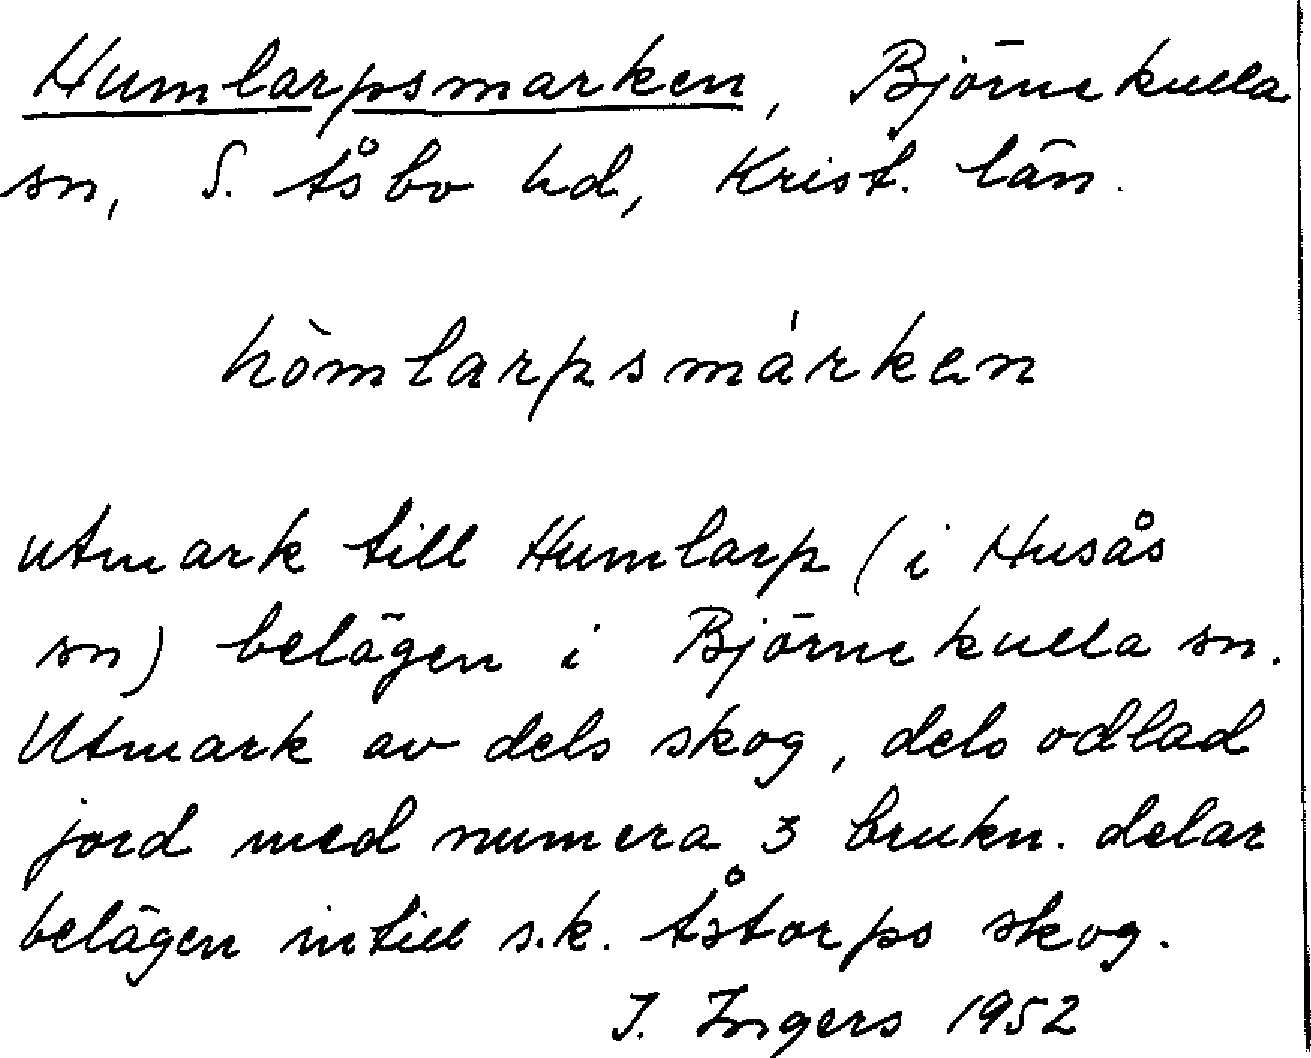 Humlarpsmarken, Björnekulla
sn, S. Åsbo hd, Krist. län.
hòmlarpsmárken
utmark till Humlarp (i Husås
sn) belägen i Björnekulla sn.
Utmark av dels skog, dels odlad
jord med numera 3 brukn. delar
belägen intill s.k. Åstorps skog.
I. Ingers 1952